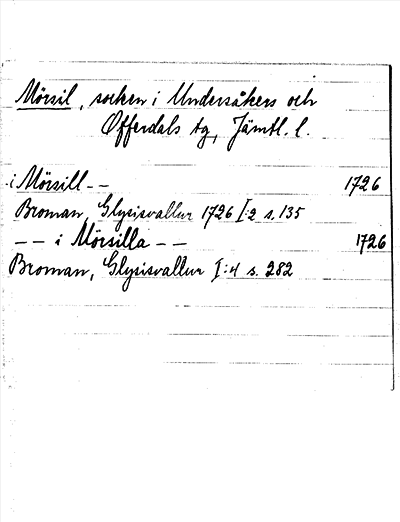 Mörsil, socken i Undersåkers och
Offerdals tg, Jämtl. l.
i Mörsill -- 1726
Broman, Glysisvallur 1726 I:2 s. 135
-- i Mörsilla -- 1726
Broman, Glysisvallur I:4 s. 282